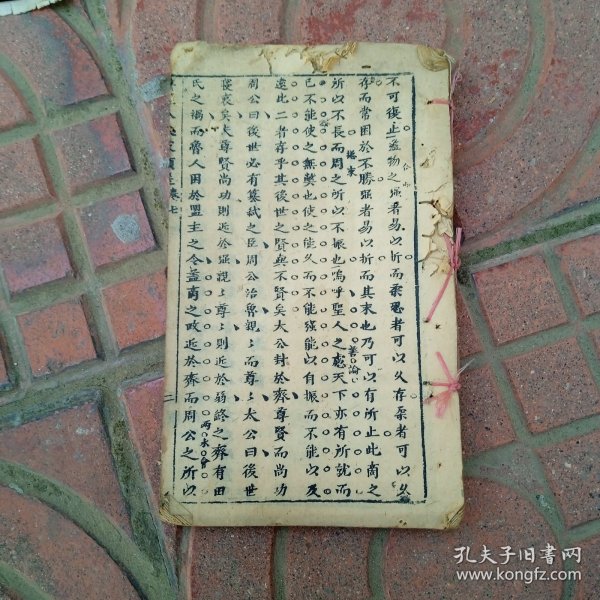 不可復止蓋物之强者易以折而柔忍者可以久存柔者可以久
存而常困於不勝强者易以折而其末也乃可以有所止此商之
所以不長而周之所以不振也嗚呼聖人之慮天下亦有所就而
已不能使之無獘也使之能久而不能强能以自振而不能以及
遠此二者存乎其後世之賢與不賢矣太公封於齊尊賢而尚功
周公曰後世必有簒弑之臣周公治魯親〻而尊〻太公曰後世
寖衰矣夫尊賢尚功則近於强親〻尊〻則近於弱終之齊有田
氏之禍而魯人困於盟主之令蓋商之政近於齊而周公之所以
總束
善論
两水會
卷七
二
孔夫子旧書网
www.kongfz.com